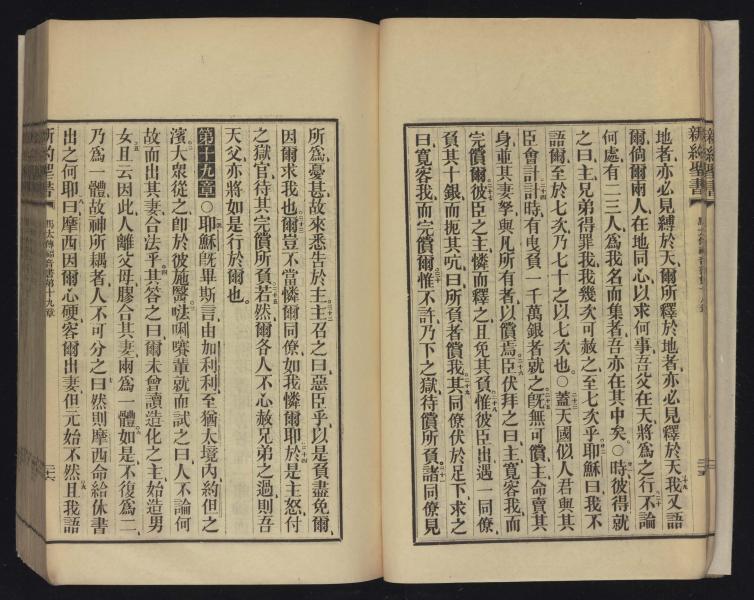 新約聖書
地者亦必見縛於天爾所釋於地者亦必見釋於天我又語
爾倘爾兩人在地同心以求何事吾父在天將爲之行不論
何處有二三人爲我名而集者吾亦在其中矣○時彼得就
之曰主兄弟得罪我我幾次可赦之至七次乎耶穌曰我不
語爾至於七次乃七十之以七次也○蓋天國似人君與其
臣會計計時有曳負一千萬銀者就之旣無可償主命賣其
身並其妻孥與凡所有者以償焉臣伏拜之曰主寬容我而
完償爾彼臣之主憐而釋之且免其負惟彼臣出遇一同僚
負其十銀而扼其吭曰所負者償我其同僚伏於足下求之
曰寬容我而完償爾惟不許乃下之獄待償所負諸同僚見
所爲憂甚故來悉告於主主召之曰惡臣乎以是負盡免爾
因爾求我也爾豈不當憐爾同僚如我憐爾耶於是主怒付
之獄官待其完償所負若然爾各人不心赦兄弟之過則吾
天父亦將如是行於爾也
第十九章○耶穌旣畢斯言由加利利至猶太境內約但之
濱大衆從之卽於彼施醫𠵽唎㘔輩就而試之曰人不論何
故而出其妻合法乎其答之曰爾未曾讀造化之主始造男
女且云因此人離父母膠合其妻兩爲一體如是不復爲二
乃爲一體故神所耦者人不可分之曰然則摩西命給休書
出之何耶曰摩西因爾心硬容爾出妻但元始不然且我語
新約聖書 馬太傳福音書第十九章 二六